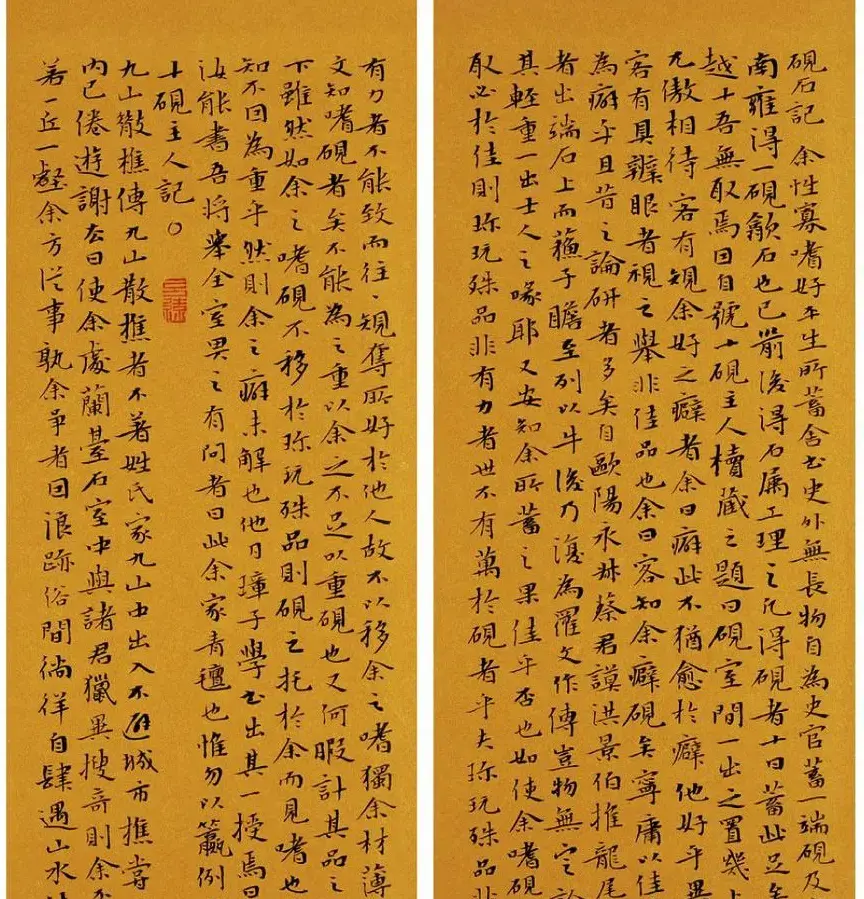 硯石記 余性寡嗜好平生所蓄舍書史外無長物自為史官蓄一端硯及
南雍得一硯歙石也已前後得石屬工理之凡得硯者十曰蓄此足矣
越十吾無取焉因自號十硯主人櫝藏之題曰硯室間一出之置幾上
兀傲相待客有規余好之癖者余曰癖此不猶愈於癖他好乎異
客有具辨眼者視之舉非佳品也余曰客知余癖硯矣寧庸以佳
為癖乎且昔之論研者多矣自歐陽永叔蔡君謨洪景伯推龍尾
者出端石上而蘓子瞻至列以牛後乃復為羅文作傳豈物無定
其輕重一出士人之喙耶又安知余所蓄之果佳乎否也如使余嗜硯
取必於佳則珎玩殊品非有力者世不有萬於硯者乎夫珎玩殊品非
有力者不能致而往、規奪所好於他人故不以移余之嗜獨余材薄
文知嗜硯者矣不能為之重以余之不足以重硯也又何暇計其品之
下雖然如余之嗜硯不移於珎玩殊品則硯之托於余而見嗜也
知不因為重乎然則余之癖未解也他日璋子學書出其一授焉曰
汝能書吾將舉全室畀之有問者曰此余家青氊也惟勿以籯例
十硯主人記○
九山散樵傳 九山散樵者不著姓氏家九山中出入不避城市樵嘗
内已倦遊謝去曰使余處蘭臺石室中與諸君獵異搜奇則余不
若一丘一壑余方從事孰余爭者因浪跡俗間徜徉自肆遇山水